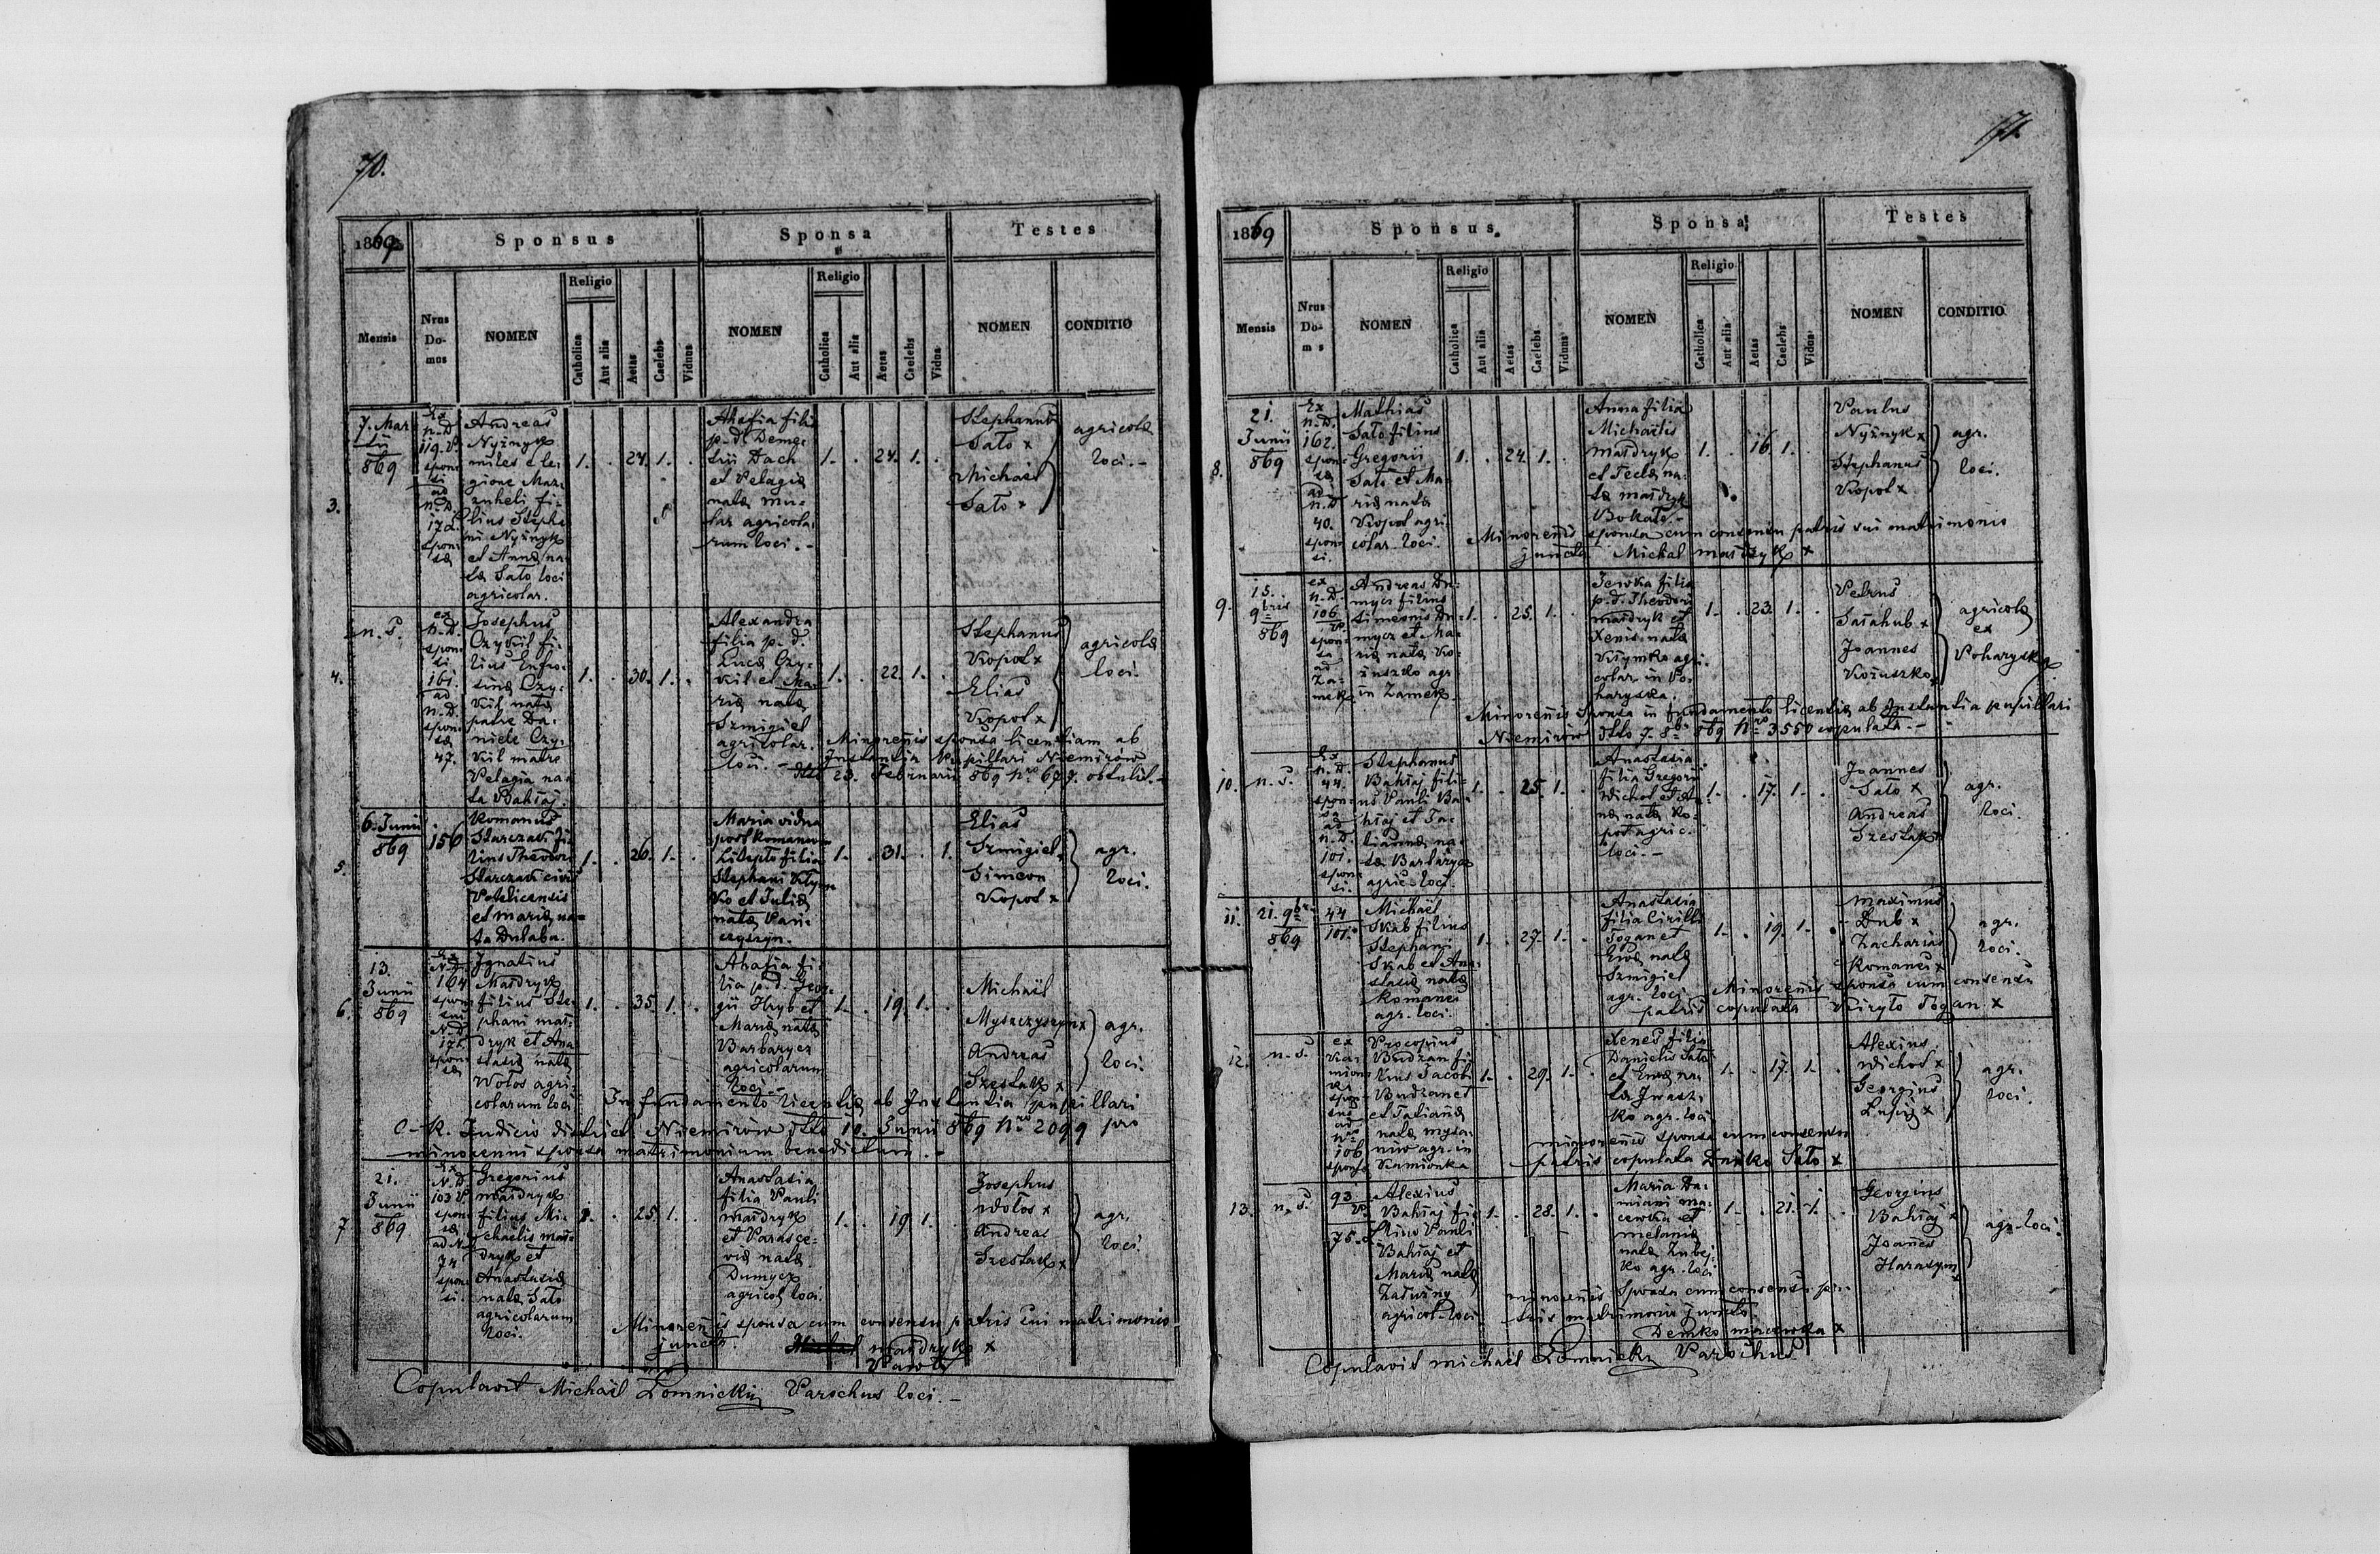 70.
1869
Sponsus
Sponsa
Testes
Mensis
Nrus Do- mus
NOMEN
Religio
Catholica
Aut alia
Aetas
Caelebs
Viduus
NOMEN
Religio
Catholica
Aut alia
Aetas
Caelebs
Vidua
NOMEN
CONDITIO
3.
7. Mar
tii
869
Ex
n.D.
119.
spon
si
ad
n.D.
172.
spon
sæ
Andreas
Nyżnyk
miles e le-
gione Maz-
zuheli fi-
lius Stepha
ni Nyżnyk
et Annæ na-
tæ Sało loci
agricolar.
1. . 24. 1. .
Ahafia fili
p. d. Deme-
trii Dach
et Pelagiæ
natæ
agricola-
rum loci. -
1. . 24. 1. .
Stephanus
Sało x
Michael
Sało x
agricolæ
loci. -
4.
n. S.
ex
n.D.
spon
si
161.
ad
n.D.
spon
sæ
47.
Josephus
Czykil fi-
lius Enfro-
sinæ Czy-
kil natæ
patre Da-
niele Czy-
kil matre
Pelagia na-
ta Bahiaj.
1. . 30. 1. .
Alexandra
filia p. d.
Lucæ Czy-
kil et Ma-
riæ natæ
Szmigiel
agricolar.
loci. -
1. . 22. 1. .
Stephanus
Kopot x
Elias
Kopot x
agricolæ
loci.
Minorenis sponsa licentiam ab
Instantia Pupillari Niemirow
dtto 23. Februarii 869 Nro 679. obtulit. -
5.
6. Junii
869
156
Romanus
Starczak fi-
lius Theodori
Starczak civis
Potelicensis
et Mariæ na-
ta Dutaba.
1. . 26. 1. .
Maria vidua
post Romanum
filia
Stephani Klym
ko et Juliæ
natæ Pań-
czyszyn.
1. . 31. . 1.
Elias
Szmigiel x
Simeon
Kopot x
agr.
loci.
6.
13.
Junii
869
Ex
N.D.
164
spon
N.D.
172
spon
sæ
Ignatius
Mańdryk
filius Ste-
phani Mań-
dryk et Ana
stasiæ natæ
Wołos agri-
colarum loci
1. . 35. 1. .
Ahafia fi-
lia p. d. Geor-
gii Hryb et
Mariæ natæ
Barbarycz
agricolarum
loci. -
1. . 19. 1. .
Michaël
Myszczyszyn x
Andreas
Szestak x
agr.
loci.
In fundamento licentiæ ab Instantia pupillari
C. K. Judicio district. Niemirow dtto 10. Junii 869 Nro 2099 pro
minorenni sponsa matrimonium benedictum. -
7
21.
Junii
869
Ex
N.D.
103
spon
sæ
ad N.
74
spon
si.
Gregorius
Mańdryk
filius Mi-
chaelis Mań-
dryk et
Anastasiæ
natæ Sało
agricolarum
loci.
1. . 25. 1. .
Anastasia
filia Pauli
Mańdryk
et Parasce-
viæ natæ
Dumycz
agricol. loci.
1. . 19. 1. .
Josephus
Wołos x
Andreas
Szestak x
agr.
loci.
Minorenis sponsa cum consensu patris sui matrimonio
juncta. Mańdryk x
Pawło
Copulavit Michaël Łomnicki Parochus loci. -
71.
1869
Sponsus.
Sponsa
Testes
Mensis
Nrus Do- m s
NOMEN
Religio
Catholica
Aut alia
Aetas
Caelebs
Viduus
NOMEN
Religio
Catholica
Aut alia
Aetas
Caelebs
Vidua
NOMEN
CONDITIO
8.
21.
Junii
869
Ex
n.D.
162.
spon-
sæ
ad
n.D
40.
spon
si.
Mathias
Sało filius
Gregorii
Sało et Ma-
riæ natæ
Kopot agri
colar. loci.
1. . 24. 1. .
Anna filia
Michaelis
Mańdryk
et Teclæ na-
tæ Mańdryk
Bokało. -
1. . 16. 1. .
Paulus
Nyżnyk x
Stephanus
Kopot x
agr.
loci.
Minorenis sponsa cum consensu patris sui matrimonio
juncta Michał Mańdryk x
9.
15.
9bris
869
ex
n.D.
106
spon-
sa
ad
Za-
mek
Andreas Du-
mycz filius
Simeonis Du-
mycz et Ma-
riæ natæ Ko-
żuszko agr.
in Zamek.
1. . 25. 1. .
Jewka filia
p. d. Theodori
Mańdryk et
Xeniæ natæ
Klymko agri-
colar. in Po-
haryska.
1. . 23. 1. .
Petrus
Sanahub x
Joannes
Kożuszko x
agricolæ
ex
Poharyska
Minorenis sponsa in fundamento licentiæ ab Instantia pupillari
Niemirow dtto 7. 8bris 869 Nro 3550 copulata. -
10.
n. S.
Ex
n.D.
44.
spon-
sæ
ad
n.D.
101.
spon
si.
Stephanus
Bahiaj fili-
us Pauli Ba-
hiaj et Ta-
tiannæ na-
tæ Barbarycz
agric. loci.
1. . 25. 1. .
Anastasia
filia Gregorii
Wichot et An-
næ natæ Ko-
pot agric.
loci. -
1. . 17. 1. .
Joannes
Sało x
Andreas
Szestak x
agr.
loci.
11.
21. 9bris
869
44
101.
Michaël
Skab filius
Stephani
Skab et Ana-
stasiæ natæ
Romanei
agr. loci.
1. . 27. 1. .
Anastasia
filia Cirilli
Togan et
Evæ natæ
Szmigiel
agr. loci
1. . 19. 1. .
Maximus
Dub x
Zacharias
Romanei x
agr.
loci.
Minorenis sponsa cum consensu
patris copulata Kiryło Togan x
12.
n. S.
ex
Ka-
mion-
ka
spon-
ad
Nro
106
sponsæ
Procopius
Budzan fi-
lius Jacobi
Budzan et
et Tatianæ
natæ
agr. in
Kamionka
1. . 29. 1. .
Xenes filia
Danielis Sało
et Evæ na-
tæ Iwasz-
ko agr. loci
1. . 17. 1. .
Alexius
Wichot x
Georgius
x
agr.
loci.
minorenis sponsa cum consensu
patris copulata Dańko Sało x
13.
n. S.
93
75.
Alexius
Bahiaj fi-
lius Pauli
Bahiaj et
Mariæ natæ
Załużny
agricol. loci.
1. . 28. 1. .
Maria Da-
miani Ma-
cewka et
Melaniæ
natæ Zubej-
ko agr. loci
1. . 21. 1. .
Georgius
Bahiaj x
Joannes
Harasym x
agr. loci.
minorenis sponsa cum consensu pa-
tris matrimonio juncta
Demko Macewka x
Copulavit Michaël Łomnicki Parochus